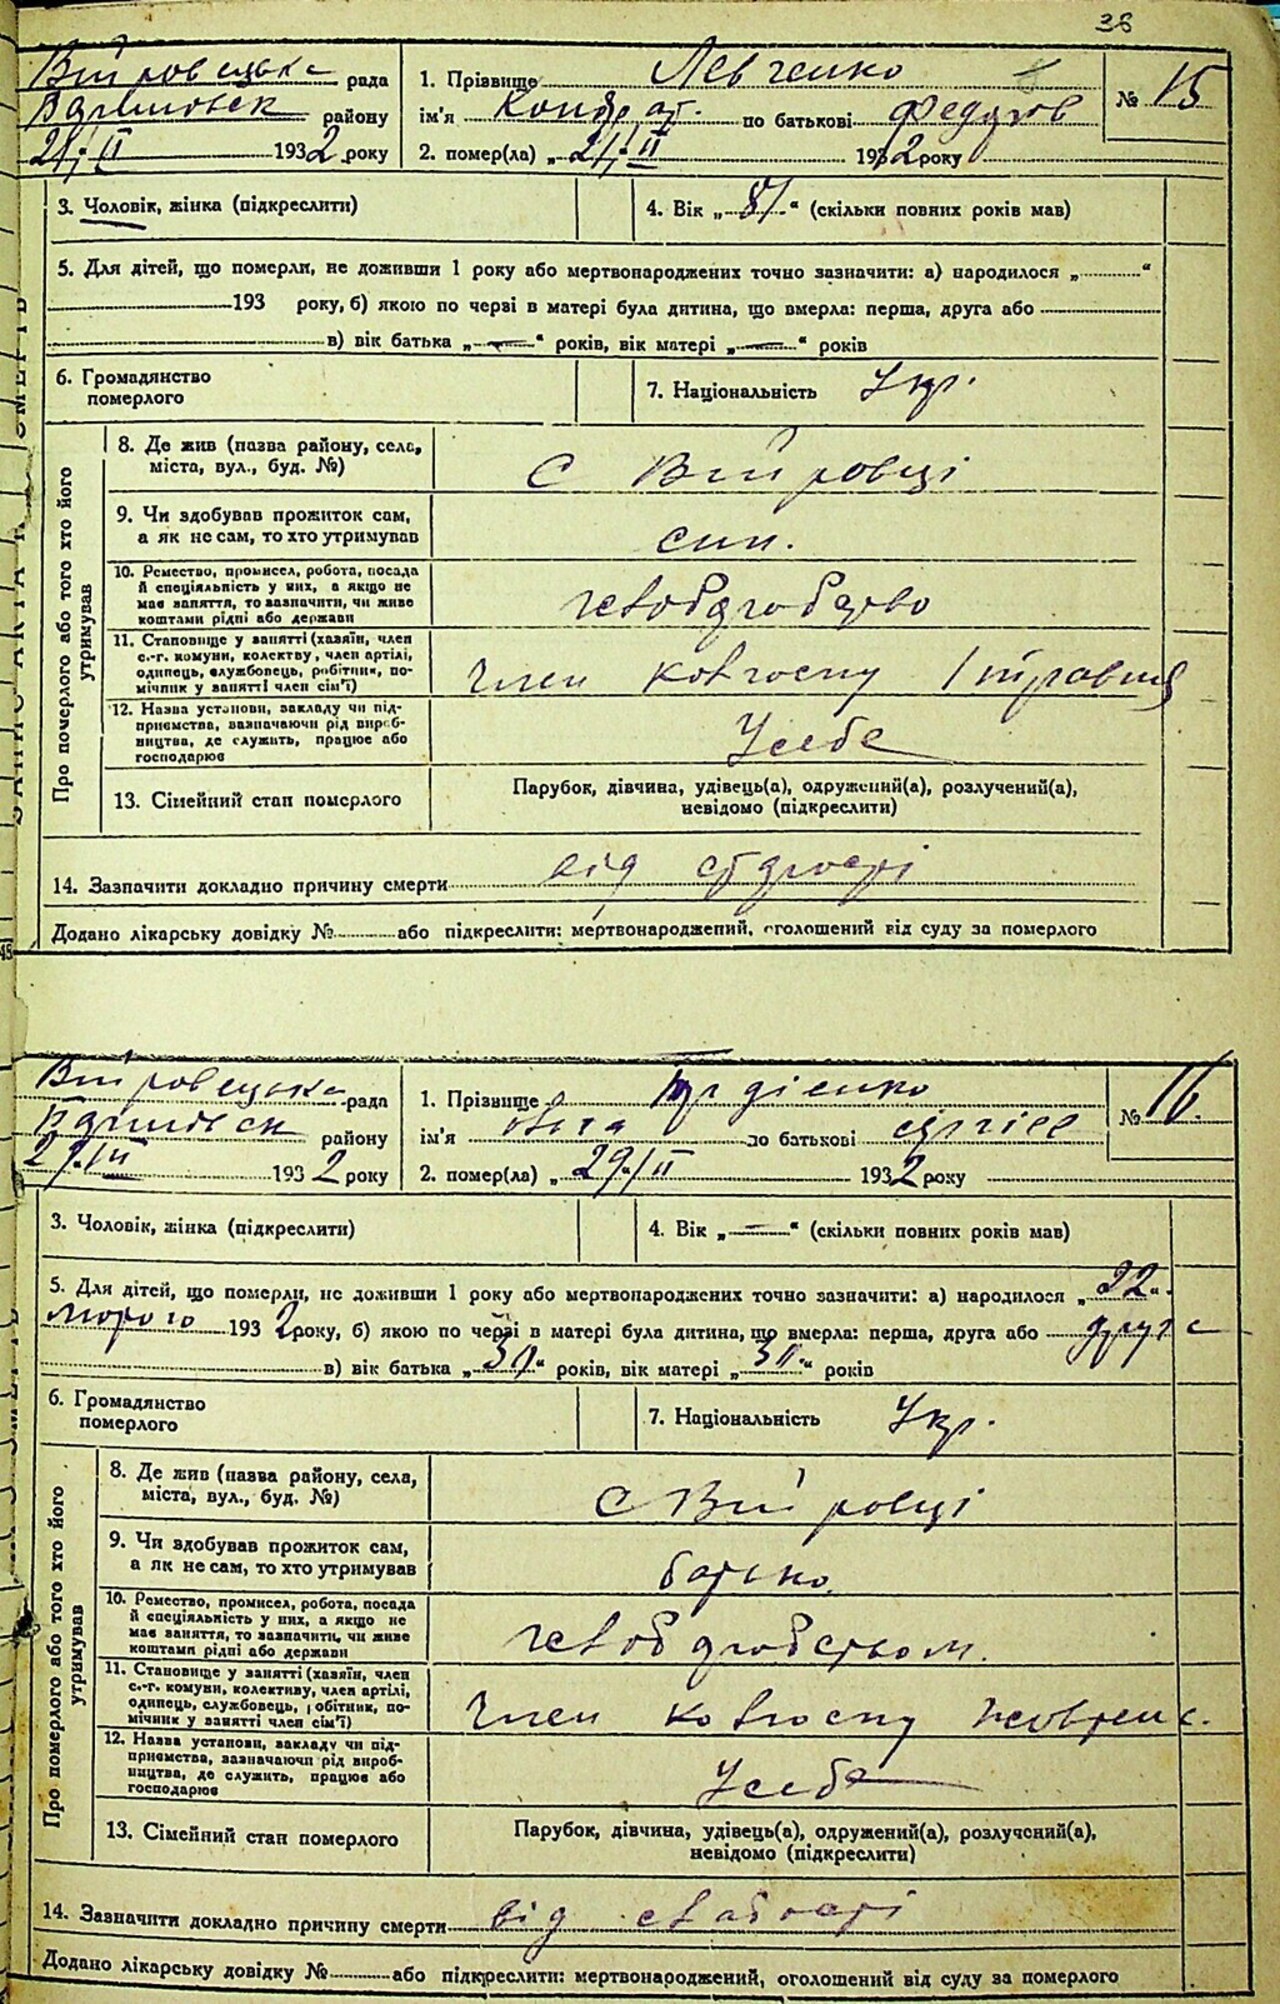 38
Війтовецька рада
району
21/II 1932 року
1. Прізвище Левченко
ім'я Кондрат по батькові Федоров
2. помер(ла) „ 21/II 1932 року
№ 15
3. Чоловік, жінка (підкреслити)
4. Вік „ 81 “ (скільки повних років мав)
5. Для дітей, що померли, не доживши 1 року або мертвонароджених точно зазначити: а) народилося „ “
193 року, б) якою по черзі в матері була дитина, що вмерла: перша, друга або
в) вік батька „ — “ років, вік матері „ — “ років
6. Громадянство
померлого
7. Національність Укр.
Про померлого або того хто його
утримував
8. Де жив (назва району, села,
міста, вул., буд. №)
с Війтовці
9. Чи здобував прожиток сам,
а як не сам, то хто утримував
син.
10. Ремество, промисел, робота, посада
й спеціяльність у них, а якщо не
має заняття, то зазначити, чи живе
коштами рідні або держави
хлібороборство
11. Становище у занятті (хазяїн, член
с.-г. комуни, колективу, член артілі,
одинець, службовець, робітник, по-
мічник у занятті член сім'ї)
Член колгоспу
12. Назва установи, закладу чи під-
приємства, зазначаючи рід вироб-
ництва, де служить, працює або
господарює
У себе
13. Сімейний стан померлого
Парубок, дівчина, удівець(а), одружений(а), розлучений(а),
невідомо (підкреслити)
14. Зазначити докладно причину смерти від старості
Додано лікарську довідку № або підкреслити: мертвонароджений, оголошений від суду за померлого
Війтовецька рада
району
29/II 1932 року
1. Прізвище Гордієнко
ім'я Ольга по батькові
2. помер(ла) „ 29/II 1932 року
№ 16.
3. Чоловік, жінка (підкреслити)
4. Вік „ — “ (скільки повних років мав)
5. Для дітей, що померли, не доживши 1 року або мертвонароджених точно зазначити: а) народилося „ 22 “
лютого 1932 року, б) якою по черзі в матері була дитина, що вмерла: перша, друга або друга
в) вік батька „ 30 “ років, вік матері „ 30 “ років
6. Громадянство
померлого
7. Національність Укр.
Про померлого або того хто його
утримував
8. Де жив (назва району, села,
міста, вул., буд. №)
с Війтовці
9. Чи здобував прожиток сам,
а як не сам, то хто утримував
батько.
10. Ремество, промисел, робота, посада
й спеціяльність у них, а якщо не
має заняття, то зазначити, чи живе
коштами рідні або держави
хліборобством.
11. Становище у занятті (хазяїн, член
с.-г. комуни, колективу, член артілі,
одинець, службовець, робітник, по-
мічник у занятті член сім'ї)
Член колгоспу
12. Назва установи, закладу чи під-
приємства, зазначаючи рід вироб-
ництва, де служить, працює або
господарює
У себе
13. Сімейний стан померлого
Парубок, дівчина, удівець(а), одружений(а), розлучений(а),
невідомо (підкреслити)
14. Зазначити докладно причину смерти від слабості
Додано лікарську довідку № або підкреслити: мертвонароджений, оголошений від суду за померлого